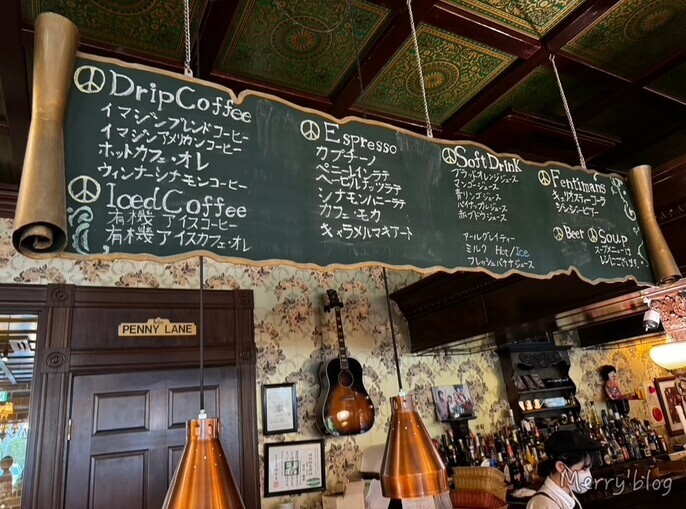 DripCoffee
イマジンブレンドコーヒー
イマジンアメリカンコーヒー
ホットカフェ・オレ
ウィンナーシナモンコーヒー
IcedCoffee
有機アイスコーヒー
有機アイスカフェ・オレ
Espresso
カプチーノ
ペニーレインラテ
ヘーゼルナッツラテ
シナモンハニーラテ
カフェ・モカ
キャラメルマキアート
SoftDrink
ブラッドオレンジジュース
マンゴージュース
青リンゴジュース
パイナップルジュース
赤ブドウジュース
アールグレイティー
ミルク Hot/Ice
フレッシュバナナジュース
Fentimans
キュリオスティーコーラ
ジンジャービアー
Beer Soup
スープメニューは
レジにございます。
PENNY LANE
Merry'blog